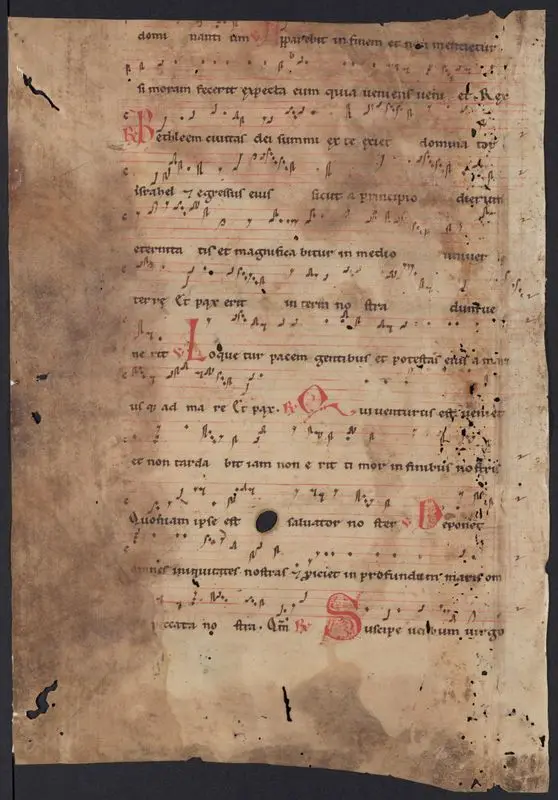 domi nanti um V Apparebit in finem et non mencietur
si moram fecerit expecta eum quia veniens veni et. Rex
R Bethleem civitas dei summi ex te exiet domina tor
israhel ⁊ egressus eius sicut a principio dierum
eternita tis et magnifica bitur in medio univer
terre Et pax erit in terra no stra dum ve
ne rit V Loque tur pacem gentibus et potestas eius a mari
us q; ad ma re Et pax. R Qui venturus est veniet
et non tarda bit iam non e rit ti mor in finibus nostris
Quoniam ipse est salvator no ster V Deponet
omnes iniquitates nostras ⁊ proiciet in profundum maris om
peccata no stra. Qm̄ R Suscipe verbum virgo